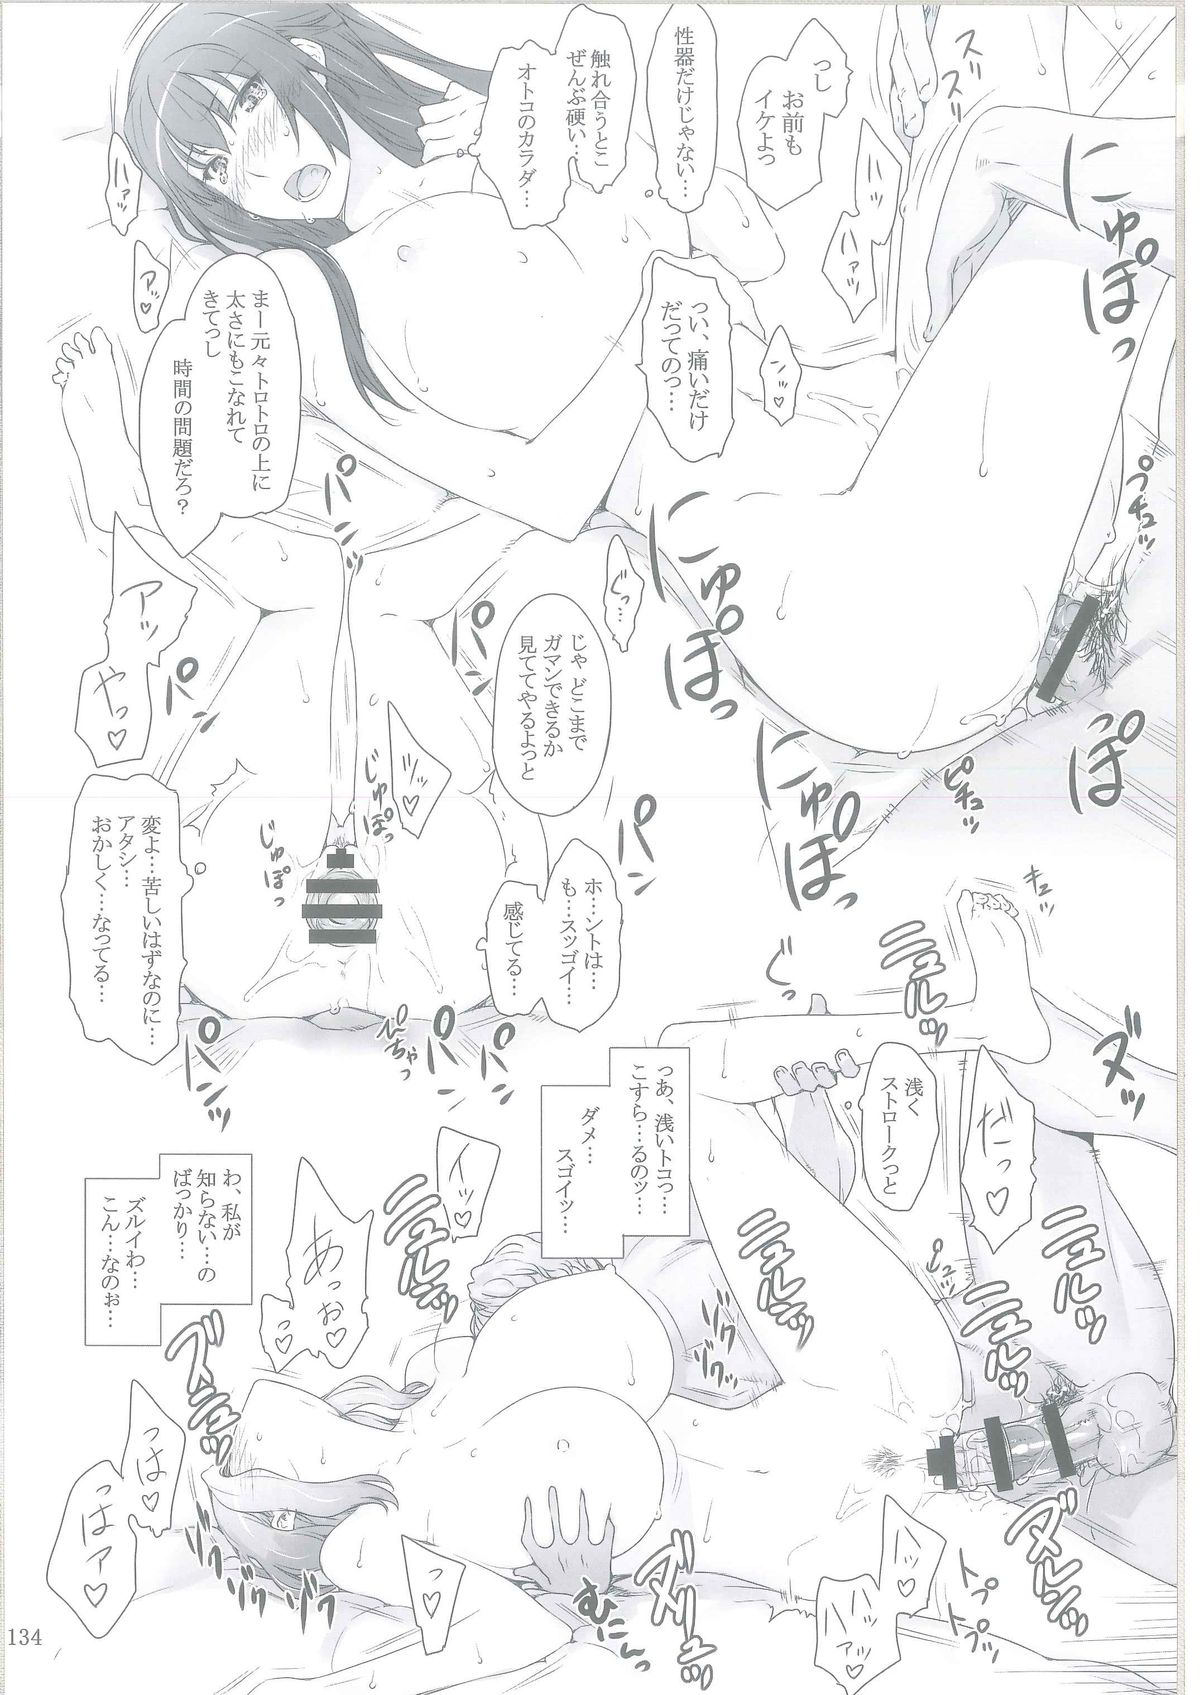 っし
お前も
イケよっ
性器だけじゃない…
触れ合うとこ
ぜんぶ硬い…
オトコのカラダ…
ハァッ
ハァッ
アッ♡
ンッ♡
っい、痛いだけ
だってのっ…
まー元々トロトロの上に
太さにもこなれて
きてっし
時間の問題だろ？
ズッ
ズズッ
にゅぽっ
プチュッ
にゅぽっ
にゅぽっ
っぽっ
ピチュッ
ぐっ…
じゃ どこまで
ガマンできるか
見ててやるよっと
アッ
やっ♡
パンッ
パンッ
パンッ
パンッ
じゅぽっ
じゅぽっ
ホ…ントは…
も…スッゴイ…
感じてる…
変よ…苦しいはずなのに…
アタシ…
おかしく…なってる…
パンッ
パンッ
パンッ
キュッ
ぐっ
ニュルルッ
ズッ
浅く
ストロークっと
だっ♡
っあ、浅いトコっ…
こすら…るのッ…
ダメ…
スゴイッ…
イッ♡
わ、私が
知らない…の
ばっかり…
ズルイわ…
こん…なのぉ…
あっぉ♡
ニュルルッ
ニュルルッ
ニュルルッ
ニュルルッ
ゾクゾクッ
っはっ♡
っはァ♡
っ♡
ハッ♡
ハァッ♡
ゾクゾクゾク
むにんっ
トプ
トプッ
134